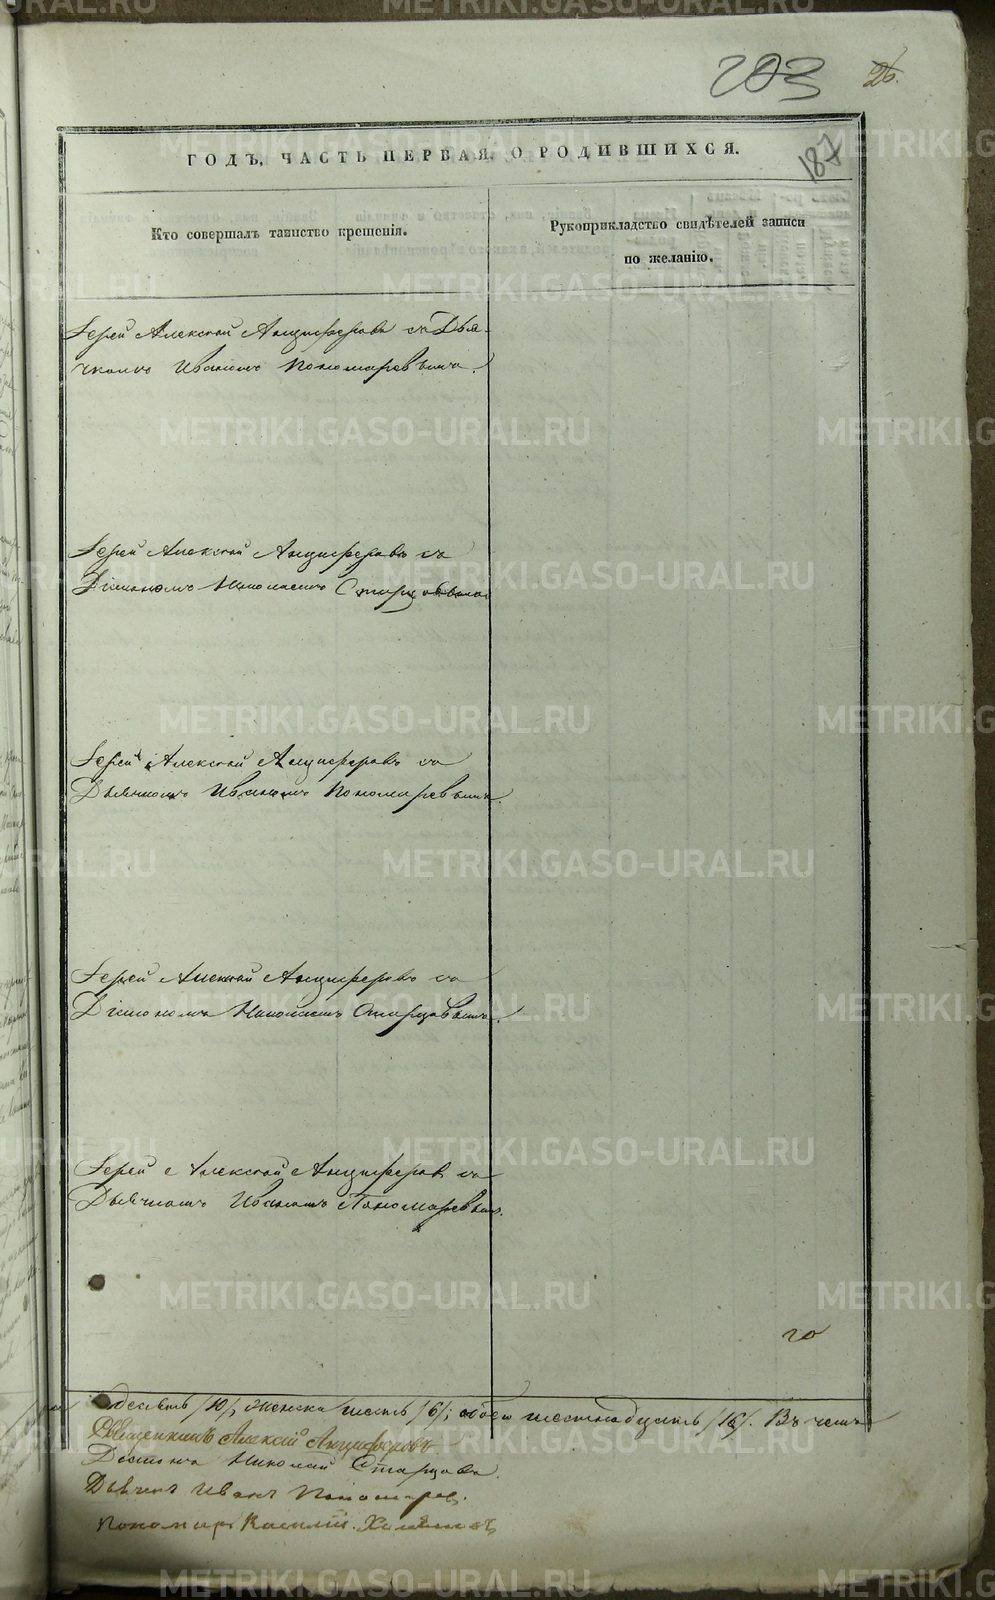 203 26.
187
ГОДЪ, ЧАСТЬ ПЕРВАЯ, О РОДИВШИХСЯ.
Кто совершалъ таинство крещенія.
Рукоприкладство свидѣтелей записи
по желанію.
Іерей Алексѣй Анциферовъ съ Дья-
чкомъ Иваномъ Пономаревымъ.
Іерей Алексѣй Анциферовъ съ
Діакономъ Николаемъ Старцовымъ
Іерей Алексѣй Анциферовъ съ
Дьячкомъ Иваномъ Пономаревымъ.
Іерей Алексѣй Анциферовъ съ
Діакономъ Николаемъ Старцовымъ.
Іерей Алексѣй Анциферовъ съ
Дьячкомъ Иваномъ Пономаревымъ.
го
десять /10/, женска шесть /6/; обоего шестнадцать /16/. Въ чемъ
Священникъ Алексѣй Анциферовъ
Діаконъ Николай Старцовъ.
Дьячекъ Иванъ Пономаревъ.
Пономарь Василій
METRIKI.GASO-URAL.RU